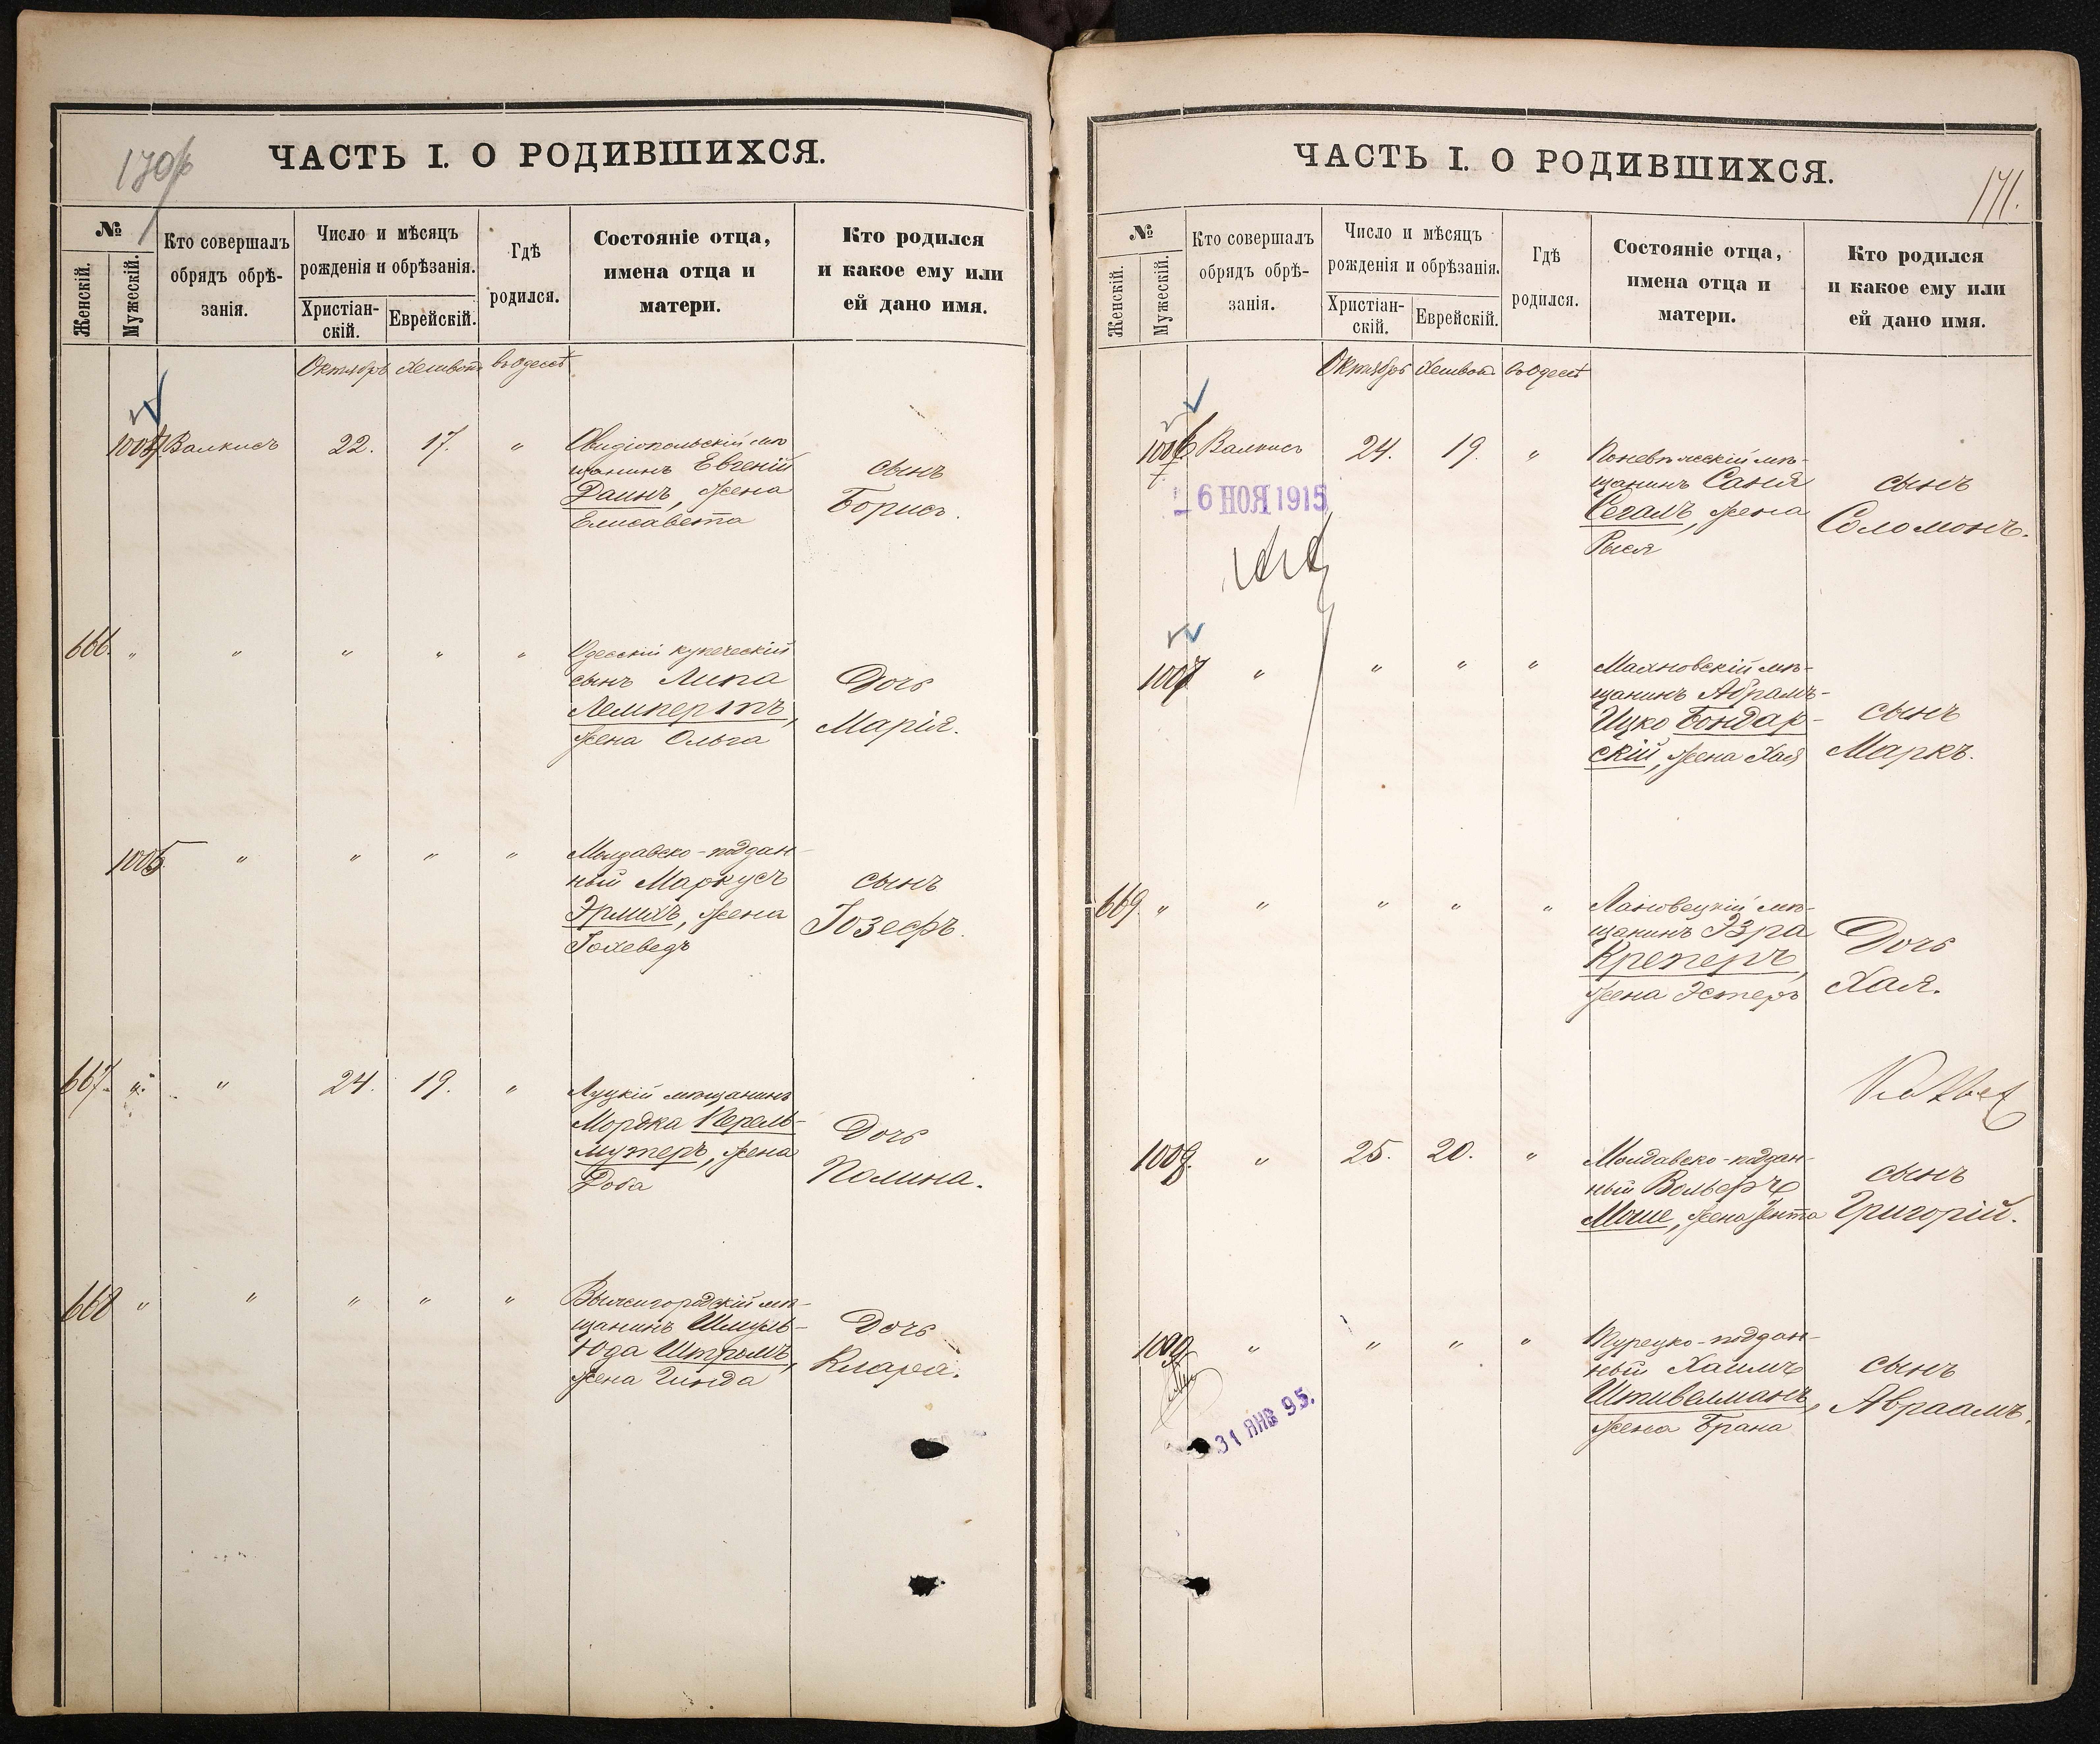 170
ЧАСТЬ I. О РОДИВШИХСЯ.
№
Женскій.
Мужескій.
Кто совершалъ
обрядъ обрѣ-
занія.
Число и мѣсяцъ
рожденія и обрѣзанія.
Христіан-
скій.
Еврейскій.
Гдѣ
родился.
Состояніе отца,
имена отца и
матери.
Кто родился
и какое ему или
ей дано имя.
Октябрь Хешвонъ въ Одессѣ
1004 Валкисъ 22. 17. "
Овидіопольскій мѣ-
щанинъ Евгеній
Даинъ, жена
Елисавета
сынъ
Борисъ.
666. " " " " "
Одесскій купеческій
сынъ Липа
Лемпертъ,
жена Ольга
Дочь
Марія.
1005 " " " "
Молдавско-поддан-
ный Маркусъ
Эрлихъ, жена
Іохеведъ
сынъ
Іозефъ.
667. " " 24. 19. "
Луцкій мѣщанинъ
Мордка Перель-
мутеръ, жена
Доба
Дочь
Полина.
668 " " " " "
Вышегородскій мѣ-
щанинъ Шмуль-
Юда Штрымъ,
жена Гинда
Дочь
Клара.
ЧАСТЬ I. О РОДИВШИХСЯ.
171.
№
Женскій.
Мужескій.
Кто совершалъ
обрядъ обрѣ-
занія.
Число и мѣсяцъ
рожденія и обрѣзанія.
Христіан-
скій.
Еврейскій.
Гдѣ
родился.
Состояніе отца,
имена отца и
матери.
Кто родился
и какое ему или
ей дано имя.
Октябрь Хешвонъ въ Одессѣ
1006 Валкисъ 24. 19. "
6 НОЯ 1915
Поневѣжскій мѣ-
щанинъ Саня
Сегалъ, жена
Рыся
сынъ
Соломонъ.
1007 " " " "
Махновскій мѣ-
щанинъ Абрамъ-
Ицко Бондар-
скій, жена Хая
сынъ
Маркъ.
669. " " " " "
Лановецкій мѣ-
щанинъ Эзра
Креперъ,
жена Эстеръ
Дочь
Хая.
1008. " 25. 20. "
Молдавско-поддан-
ный Вольфъ
Моше, жена Ента
сынъ
Григорій.
1009 " " " "
31 ЯНВ 95.
Турецко-поддан-
ный Хаимъ
Штивельманъ,
жена Брана
сынъ
Авраамъ.